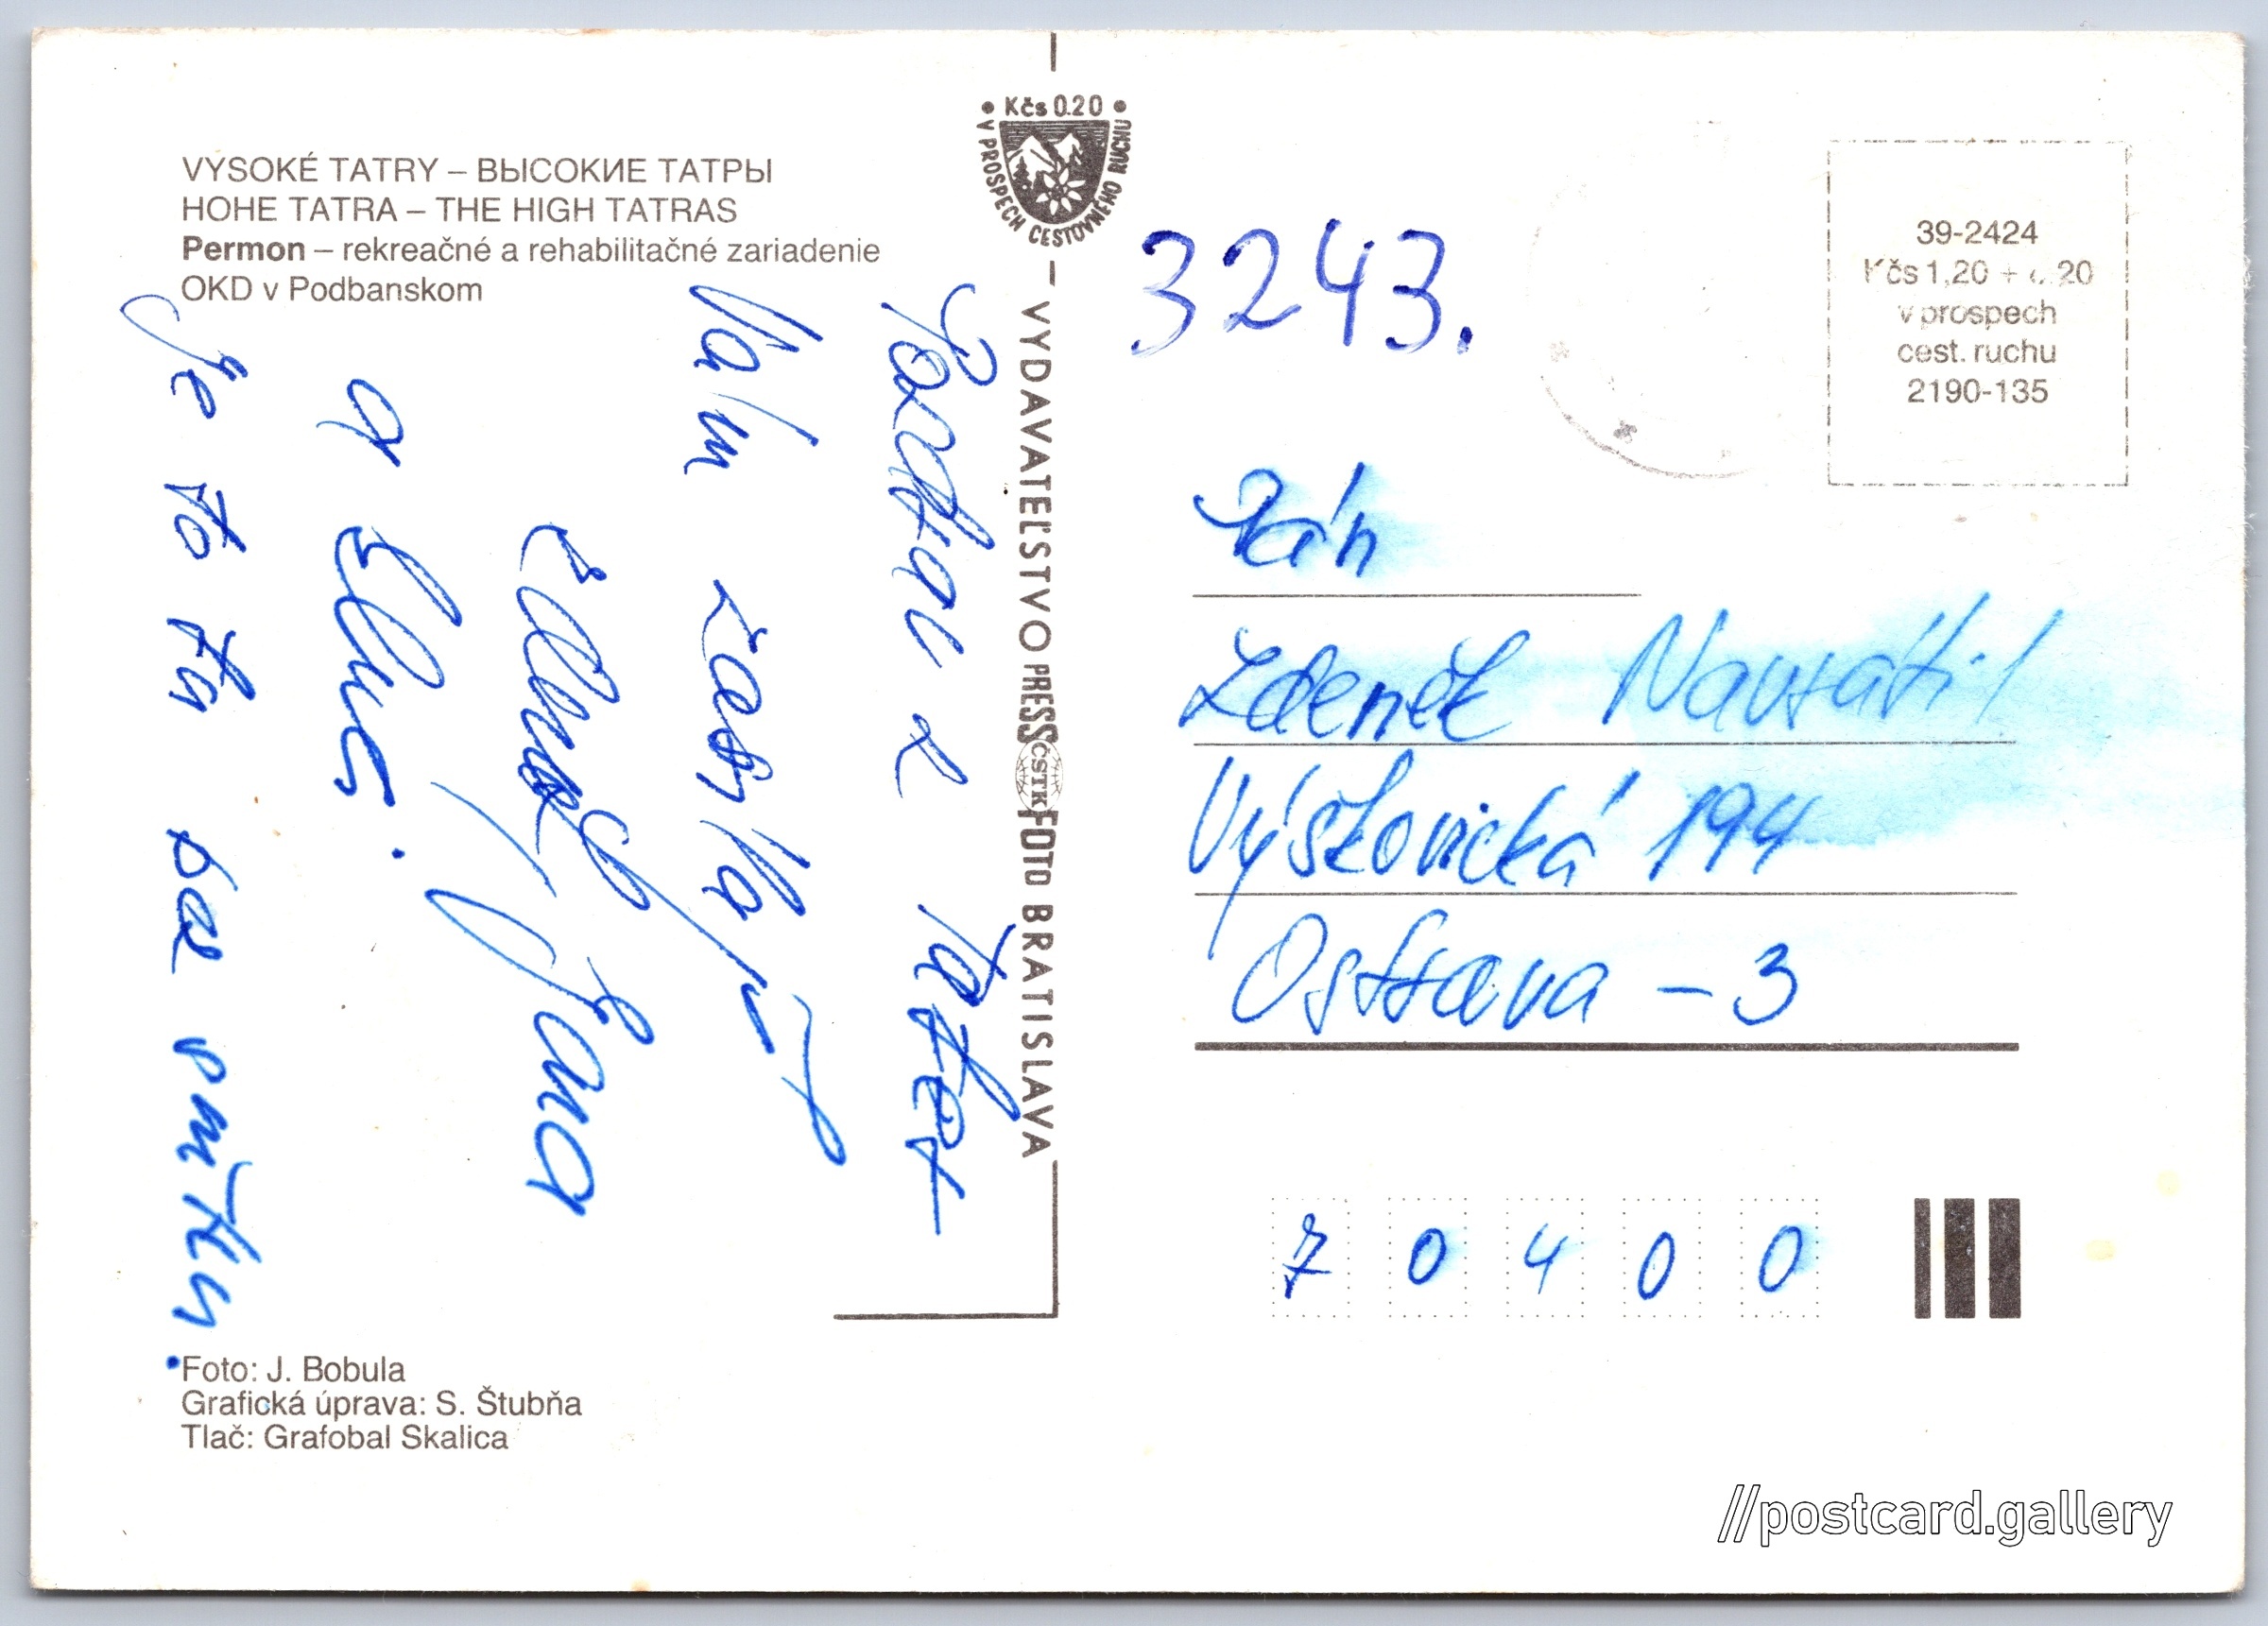 VYSOKÉ TATRY – ВЫСОКИЕ ТАТРЫ
HOHE TATRA – THE HIGH TATRAS
Permon – rekreačné a rehabilitačné zariadenie
OKD v Podbanskom
Pozdrav z Tater
Vám
a
Je to ta bez
Foto: J. Bobula
Grafická úprava: S. Štubňa
Tlač: Grafobal Skalica
Kčs 0.20
V PROSPECH CESTOVNÉHO RUCHU
VYDAVATEĽSTVO PRESSFOTO BRATISLAVA
ČSTK
3243.
39-2424
Kčs 1,20 + 0,20
v prospech
cest. ruchu
2190-135
Pán
Zdeněk Navrátil
Výškovická 194
Ostrava - 3
7 0 4 0 0
//postcard.gallery